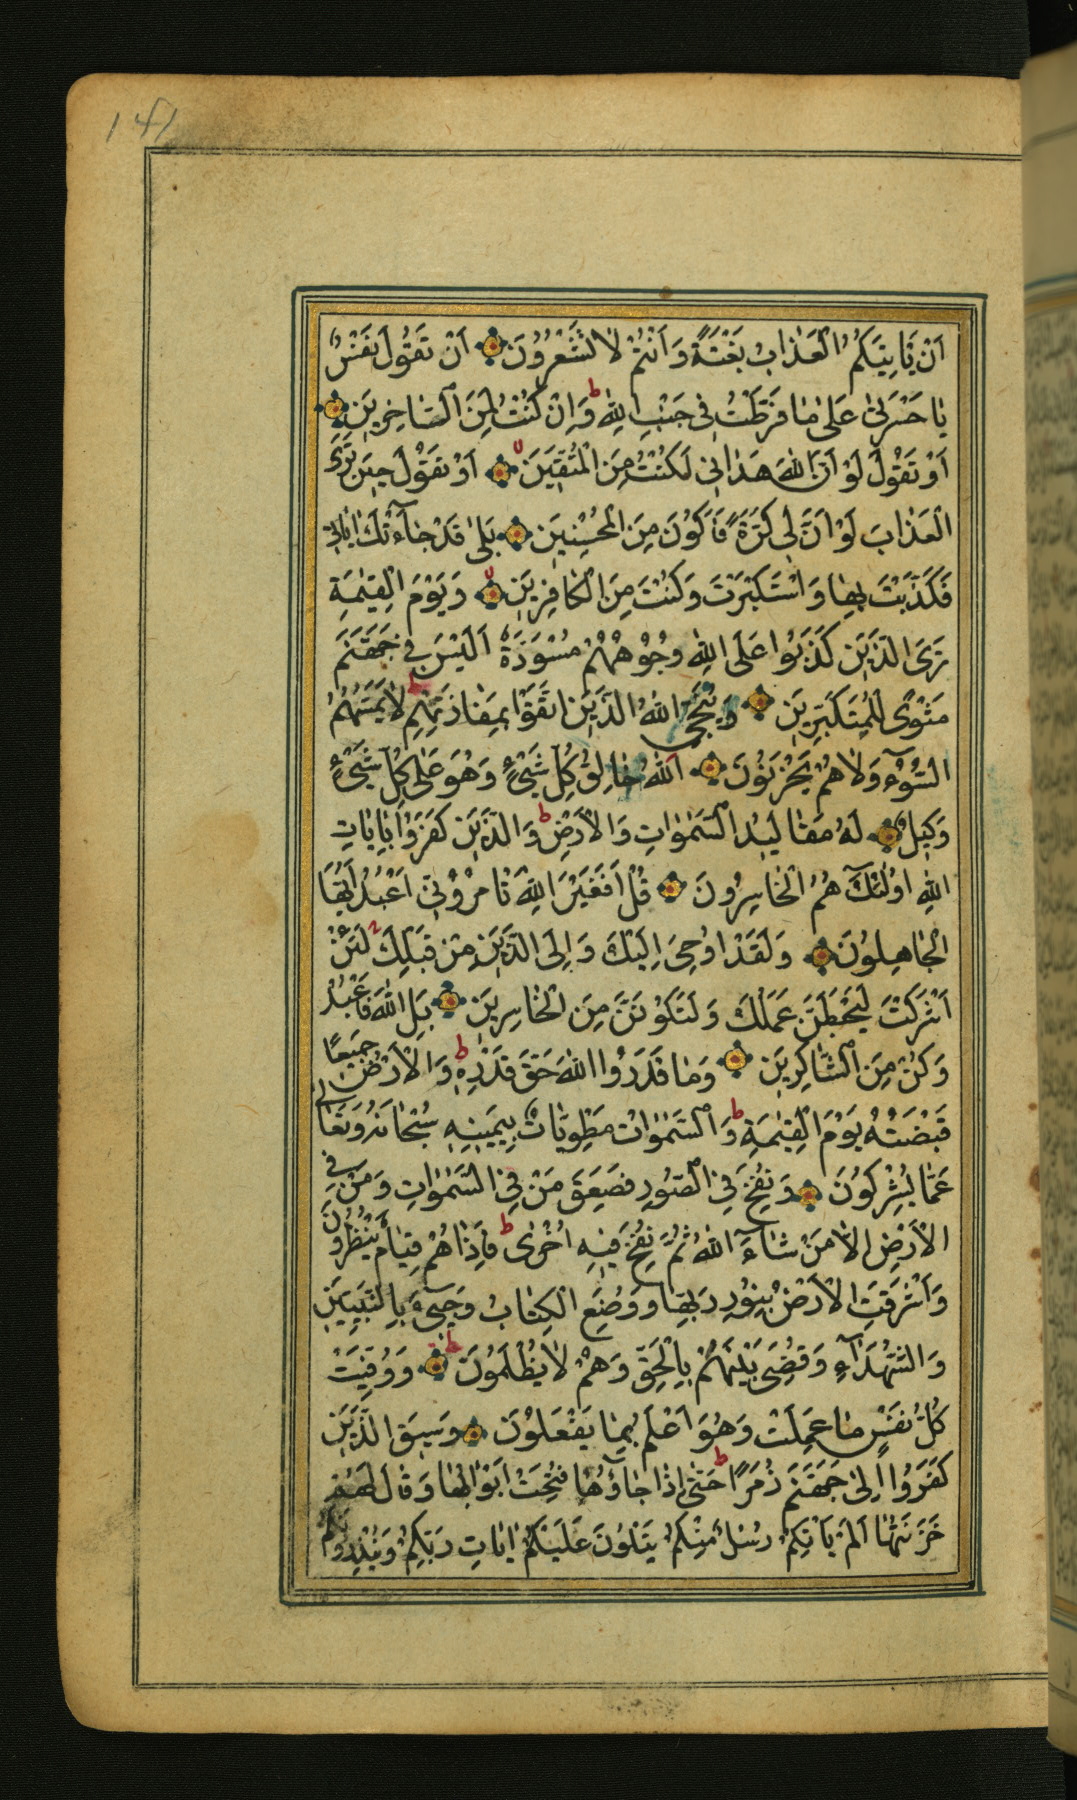 141
اَنْ يَاْتِيَكُمُ الْعَذَابُ بَغْتَةً وَاَنْتُمْ لَا تَشْعُرُونَ اَنْ تَقُولَ نَفْسٌ
يَا حَسْرَتٰى عَلٰى مَا فَرَّطْتُ فِي جَنْبِ اللهِ ط وَاِنْ كُنْتُ لَمِنَ السَّاخِرِينَ
اَوْ تَقُولَ لَوْ اَنَّ اللهَ هَدَانِي لَكُنْتُ مِنَ الْمُتَّقِينَ اَوْ تَقُولَ حِينَ تَرَى
الْعَذَابَ لَوْ اَنَّ لِي كَرَّةً فَاَكُونَ مِنَ الْمُحْسِنِينَ بَلٰى قَدْ جَآءَتْكَ اٰيَاتِي
فَكَذَّبْتَ بِهَا وَاسْتَكْبَرْتَ وَكُنْتَ مِنَ الْكَافِرِينَ وَيَوْمَ الْقِيٰمَةِ
تَرَى الَّذِينَ كَذَبُوا عَلَى اللهِ وُجُوهُهُمْ مُسْوَدَّةٌ اَلَيْسَ فِي جَهَنَّمَ
مَثْوًى لِلْمُتَكَبِّرِينَ وَيُنَجِّي اللهُ الَّذِينَ اتَّقَوْا بِمَفَازَتِهِمْ ط لَا يَمَسُّهُمُ
السُّوٓءُ وَلَا هُمْ يَحْزَنُونَ اَللهُ خَالِقُ كُلِّ شَيْءٍ وَهُوَ عَلٰى كُلِّ شَيْءٍ
وَكِيلٌ لَهُ مَقَالِيدُ السَّمٰوَاتِ وَالْاَرْضِ ط وَالَّذِينَ كَفَرُوا بِاٰيَاتِ
اللهِ اُولٰٓئِكَ هُمُ الْخَاسِرُونَ قُلْ اَفَغَيْرَ اللهِ تَاْمُرُوٓنِّي اَعْبُدُ اَيُّهَا
الْجَاهِلُونَ وَلَقَدْ اُوحِيَ اِلَيْكَ وَاِلَى الَّذِينَ مِنْ قَبْلِكَ لَئِنْ
اَشْرَكْتَ لَيَحْبَطَنَّ عَمَلُكَ وَلَتَكُونَنَّ مِنَ الْخَاسِرِينَ بَلِ اللهَ فَاعْبُدْ
وَكُنْ مِنَ الشَّاكِرِينَ وَمَا قَدَرُوا اللهَ حَقَّ قَدْرِهِ ط وَالْاَرْضُ جَمِيعًا
قَبْضَتُهُ يَوْمَ الْقِيٰمَةِ ط وَالسَّمٰوَاتُ مَطْوِيَّاتٌ بِيَمِينِهِ سُبْحَانَهُ وَتَعَالٰى
عَمَّا يُشْرِكُونَ وَنُفِخَ فِي الصُّورِ فَصَعِقَ مَنْ فِي السَّمٰوَاتِ وَمَنْ فِي
الْاَرْضِ اِلَّا مَنْ شَآءَ اللهُ ثُمَّ نُفِخَ فِيهِ اُخْرٰى ط فَاِذَا هُمْ قِيَامٌ يَنْظُرُونَ
وَاَشْرَقَتِ الْاَرْضُ بِنُورِ رَبِّهَا وَوُضِعَ الْكِتَابُ وَجِيٓءَ بِالنَّبِيِّينَ
وَالشُّهَدَآءِ وَقُضِيَ بَيْنَهُمْ بِالْحَقِّ وَهُمْ لَا يُظْلَمُونَ وَوُفِّيَتْ
كُلُّ نَفْسٍ مَا عَمِلَتْ وَهُوَ اَعْلَمُ بِمَا يَفْعَلُونَ وَسِيقَ الَّذِينَ
كَفَرُوا اِلٰى جَهَنَّمَ زُمَرًا ط حَتّٰى اِذَا جَاؤُهَا فُتِحَتْ اَبْوَابُهَا وَقَالَ لَهُمْ
خَزَنَتُهَا اَلَمْ يَاْتِكُمْ رُسُلٌ مِنْكُمْ يَتْلُونَ عَلَيْكُمْ اٰيَاتِ رَبِّكُمْ وَيُنْذِرُونَكُمْ